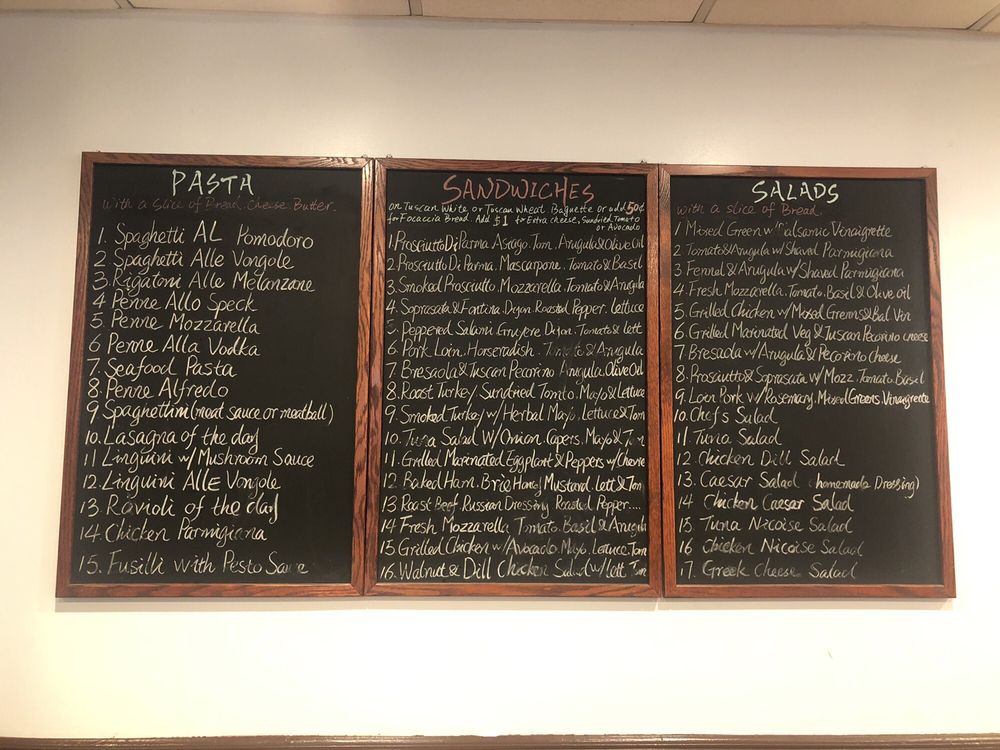 PASTA
with a slice of Bread. Cheese. Butter.
1. Spaghetti AL Pomodoro
2 Spaghetti Alle Vongole
3. Rigatoni Alle Melanzane
4 Penne Allo Speck
5. Penne Mozzarella
6 Penne Alla Vodka
7. Seafood Pasta
8. Penne Alfredo
9 Spaghettini (meat sauce or meatball)
10. Lasagna of the day
11 Linguini w/ Mushroom Sauce
12. Linguini AllE Vongole
13. Ravioli of the day
14. Chicken Parmigiana
15. Fusilli with Pesto Sauce
SANDWICHES
on Tuscan White or Tuscan Wheat Baguette or add 50¢
for Focaccia Bread. Add $1 for Extra cheese, Sundried Tomato
or Avocado
1. Prosciutto Di Parma Asiago. Tom. Arugula & Olive Oil
2. Prosciutto Di Parma. Mascarpone. Tomato & Basil
3. Smoked Prosciutto. Mozzarella Tomato & Arugula
4. Soprasata & Fontina Dijon Roasted Pepper. Lettuce
5. Peppered Salami Gruyere Dijon. Tomato & lett
6. Pork Loin. Horseradish. Tomato & Arugula
7. Bresaola & Tuscan Pecorino Arugula. Olive Oil
8. Roast Turkey. Sundried Tomato. Mayo & Lettuce
9. Smoked Turkey w/ Herbal Mayo. Lettuce & Tom
10. Tuna Salad W/ Onion. Capers. Mayo & Tom
11. Grilled Marinated Eggplant & Peppers w/ Chevre
12. Baked Ham. Brie Honey Mustard. Lett & Tom
13 Roast Beef Russian Dressing Roasted Pepper....
14 Fresh Mozzarella Tomato. Basil & Arugula
15 Grilled Chicken w/ Avocado. Mayo. Lettuce. Tom
16. Walnut & Dill Chicken Salad w/ lett Tom
SALADS
with a slice of Bread.
1 Mixed Green w/ Balsamic Vinaigrette
2 Tomato & Arugula w/ Shaved Parmigiana
3 Fennel & Arugula w/ Shaved Parmigiana
4 Fresh Mozzarella. Tomato. Basil & Olive oil
5. Grilled Chicken w/ Mixed Greens & Bal Vin
6 Grilled Marinated Veg & Tuscan Pecorino cheese
7 Bresaola w/ Arugula & Pecorino Cheese
8. Prosciutto & Soprasata w/ Mozz. Tomato. Basil
9. Loin Pork w/ Rosemary. Mixed Greens Vinaigrette
10. Chef's Salad
11. Tuna Salad
12. Chicken Dill Salad
13. Caesar Salad (homemade Dressing)
14 Chicken Caesar Salad
15 Tuna Nicoise Salad
16 Chicken Nicoise Salad
17. Greek Cheese Salad